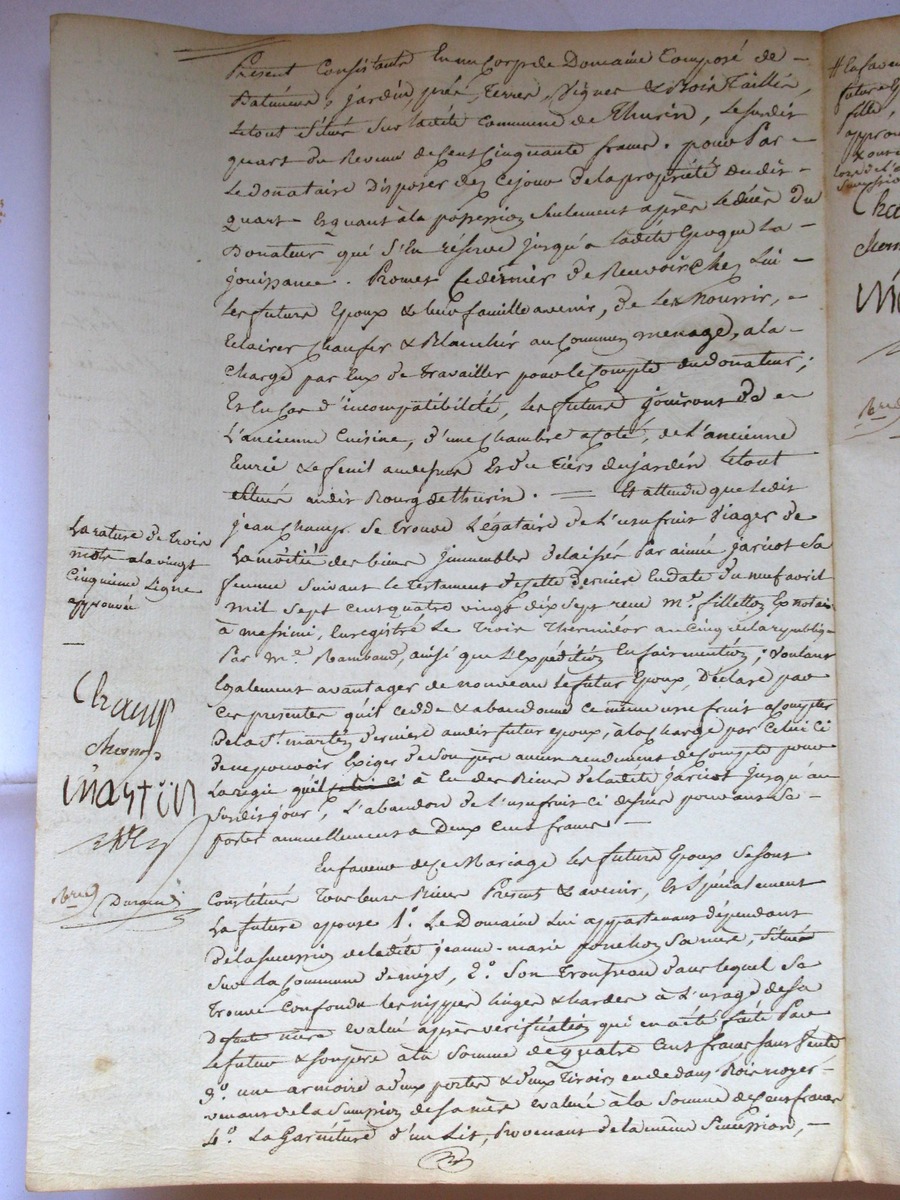 Present Consistants En un Corps de Domaine Composé de
Batiments, jardin, prés, Terres, Vignes & Bois Taillis,
Le tout Situés Sur ladite Commune de Thurin, Le Susdit
quart du Revenu de Cent Cinquante francs. pour Par
Le donataire Disposer dez Cejour de la propriété dudit
quart Et quant à la possession Seulement après Le décès Du
Donateur qui S'En réserve jusqu'a ladite Epoque La
jouissance. Promet Ce dernier de Recevoir chez Lui
Les futurs Epoux & leur famille avenir, de Les Nourrir,
Eclairer Chaufer & Blanchir au Commun menage, a la
Charge par Eux de Travailler pour le Compte du donateur;
Et En Cas d'incompatibilité, Les futurs jouiront de
L'ancienne Cuisine, d'une Chambre a Coté, de L'ancienne
Ecurie & Le fenil au dessus Et du Tiers du jardin Le tout
Situés audit Bourg de Thurin. = Et attendu que Ledit
jean Champ. Se trouve Légataire de L'usufruit Viager de
La moitié des biens immeubles delaissés Par aimée jaricot Sa
femme Suivant Le Testament de cette derniere En date du neuf avril
mil Sept Cent quatre vingt dix Sept recu Mr. fillettoz Ex notaire
à messimi, Enregistré Le Trois Thermidor au Cinq de la république
Par Me. Rambaud, ainsi que L'Expédition En fait mention; Voulant
Egalement avantager de nouveau Le futur Epoux, Déclare par
Ces presentes qu'il Cedde & abandonne Ce même usufruit a Compter
De la St. martin Derniere audit futur epoux, à la Charge par Celui Ci
De ne pouvoir Exiger de Son père aucun rendement de Compte pour
La regie qu'il à Eu des Biens de ladite jaricot jusqu'au
Susdit jour, L'abandon de L'usufruit Ci dessus pouvant Se
porter annuellement a Deux Cent francs.
En faveur de Ce Mariage Les futurs Epoux Se Sont
Constitués Tous leurs Biens Présents & avenir, Et Spécialement
La future epouse 1°. Le Domaine Lui appartenant dépendant
De la Succession de ladite jeanne-marie ponchon Sa mère, Situé
Sur La Commune de 2°. Son Trousseau dans lequel Se
Trouve Confondu Les nippes linges & hardes à L'usage de Sa
Defunte mère evalué après vérification qui en a été faite Par
Le futur & Son père à la Somme de quatre Cent francs Sans Vente
3°. une armoire a deux portes & deux Tiroirs en dedans Bois noyer
venant de la Succession de Sa mère evalué à la Somme de Cent francs
4°. La Garniture d'un Lit, Provenant de la même Succession,
La rature de Trois
mots a la vingt
Cinquieme Ligne
approuvée
Champ
martin
Durand